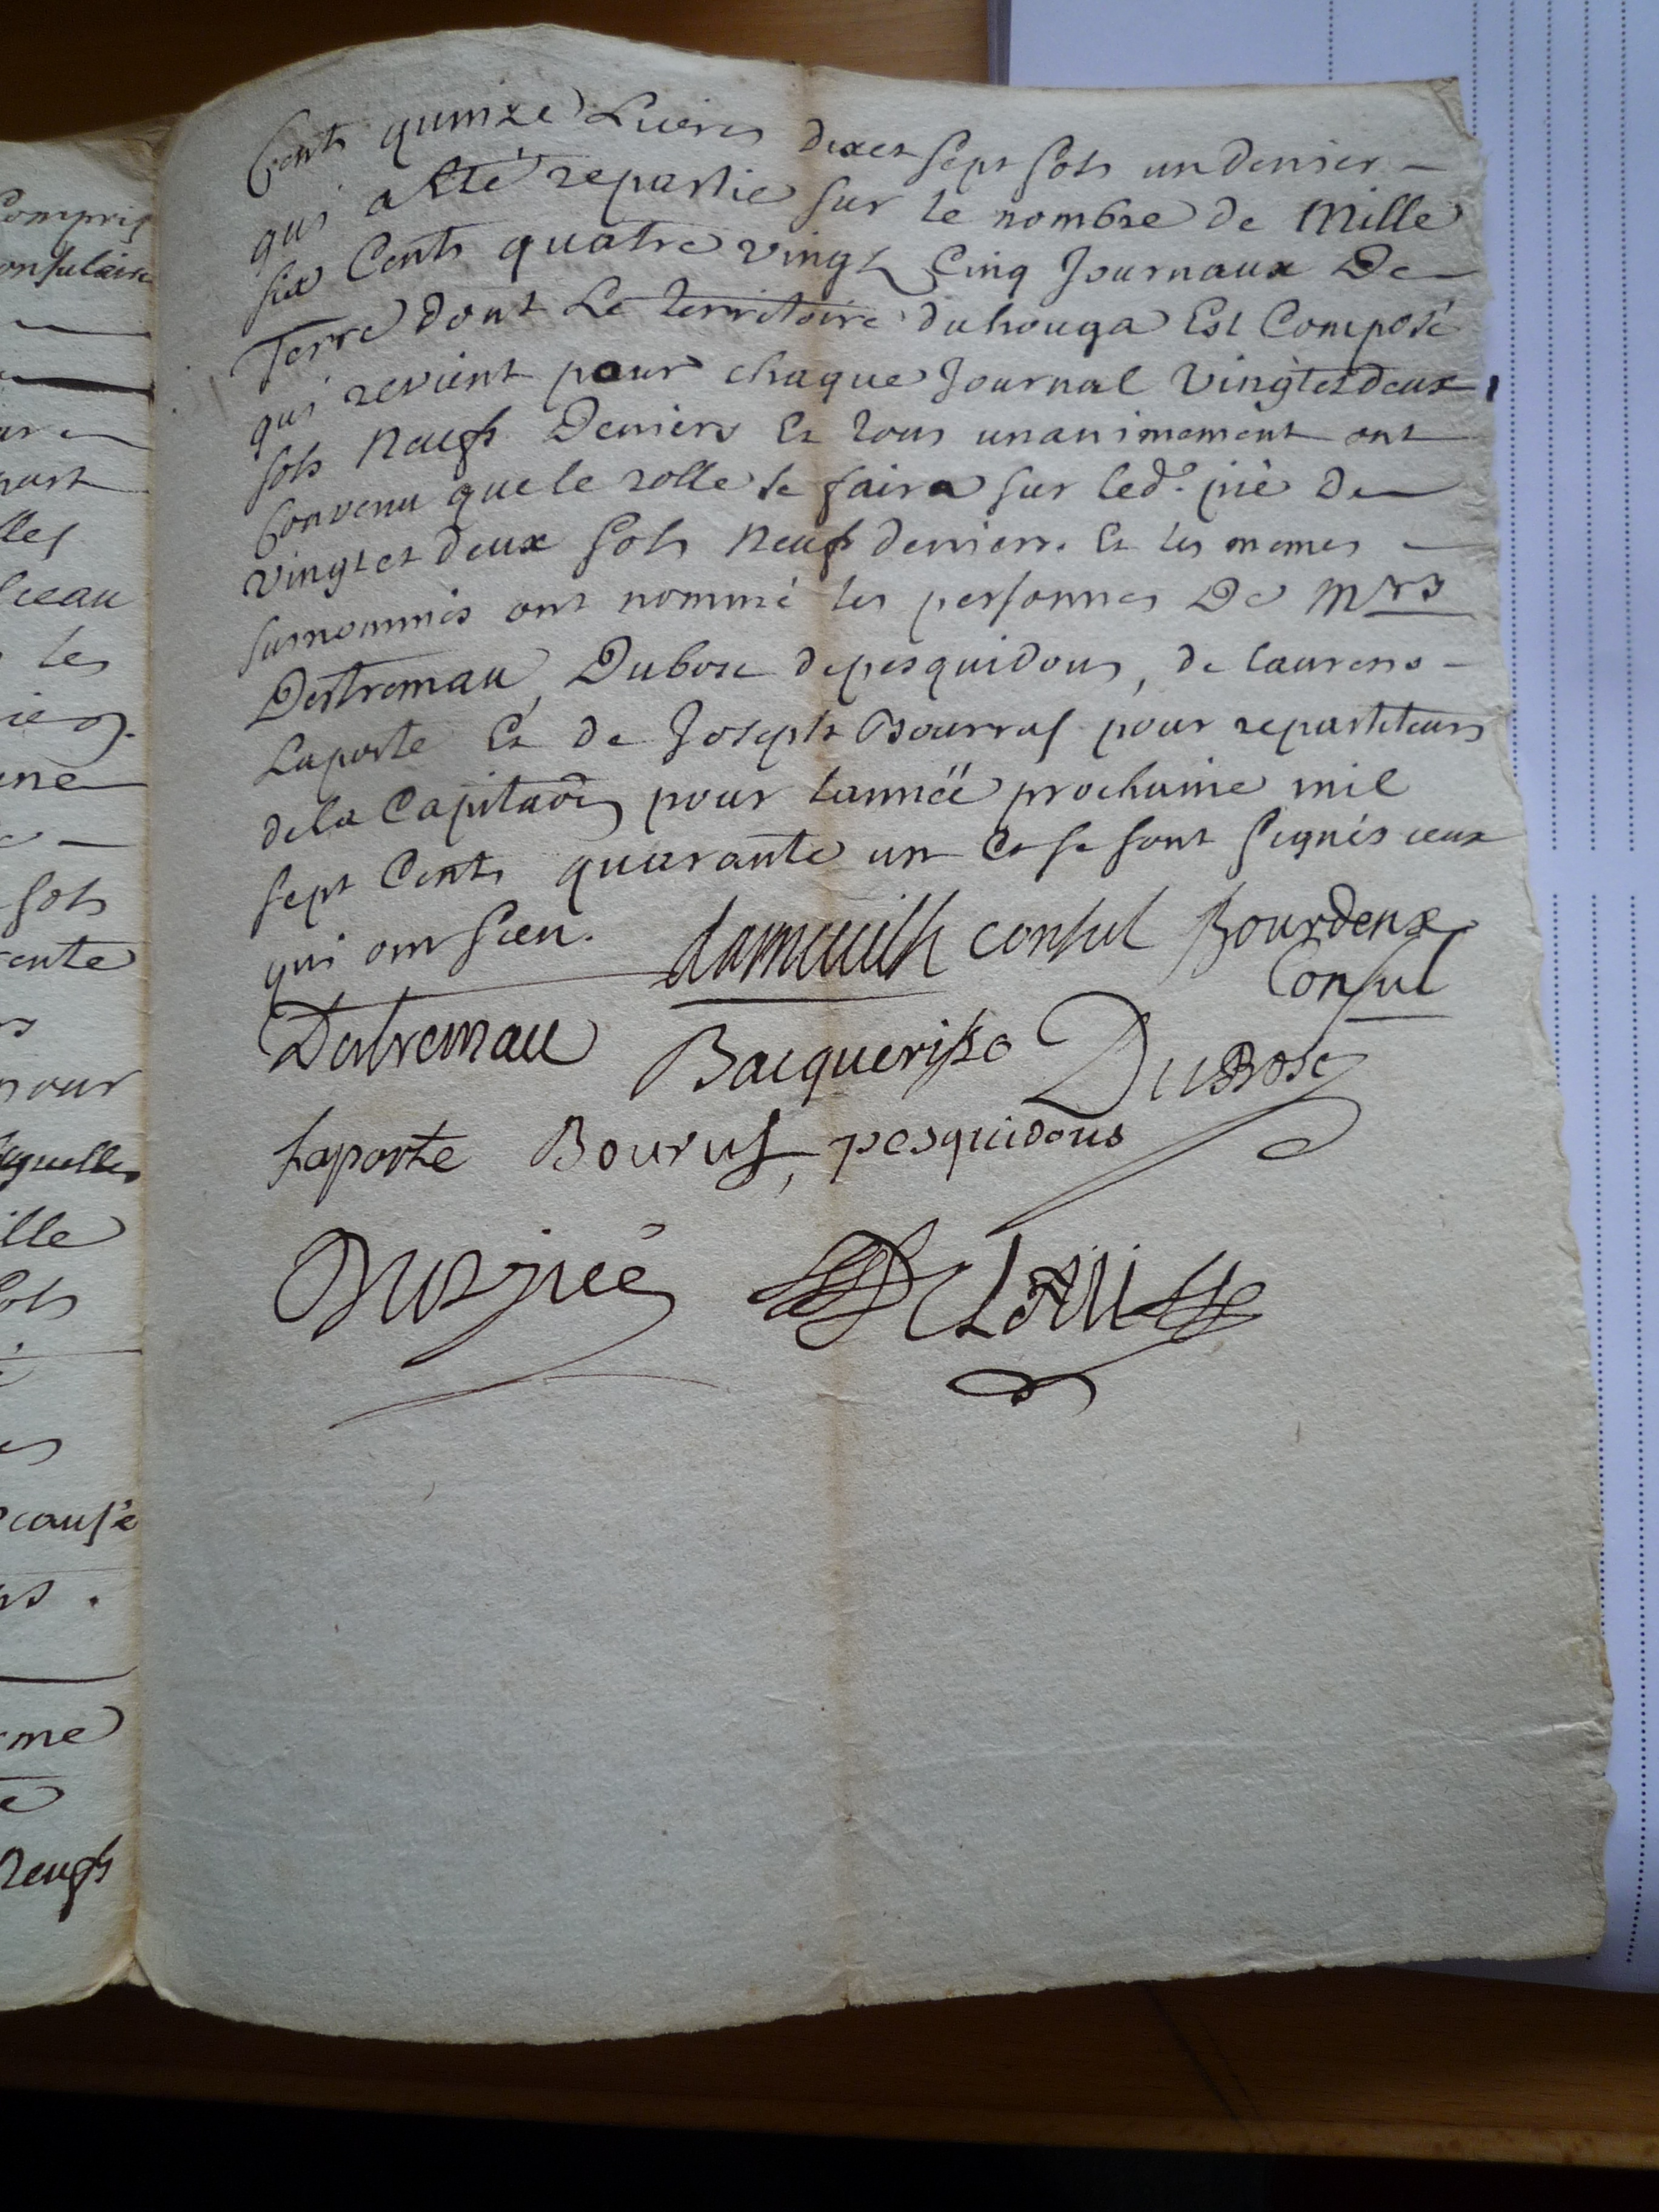 Cents quinze Livres dixet sept sols un denier -
qui a Eté repartie sur le nombre de Mille
six Cents quatre vingt Cinq Journaux De
Terre dont Le territoire duhouga Est Composé
qui revient pour chaque Journal Vingtetdeux
sols neufs Deniers Et tous unanimement ont
Convenu que le rolle se faira sur led. pié De
vingtet deux sols neufs deniers. Et les memes
surnommés ont nommé les personnes De Mrs
Destremau, Dubosc depesquidous, de laurens
Laporte Et de Joseph Bourrus pour repartiteurs
dela Capitaõn pour lannéë prochaine mil
sept Cents quarante un Et se sont signés ceux
qui ont sceu. consul Bourdenx
Consul
Destremau Bacquerisse DuBosc
Laporte Bourus, pesquidous
compris
onsulaire
part
les
sols
pour
ille
sols
causé
neufs